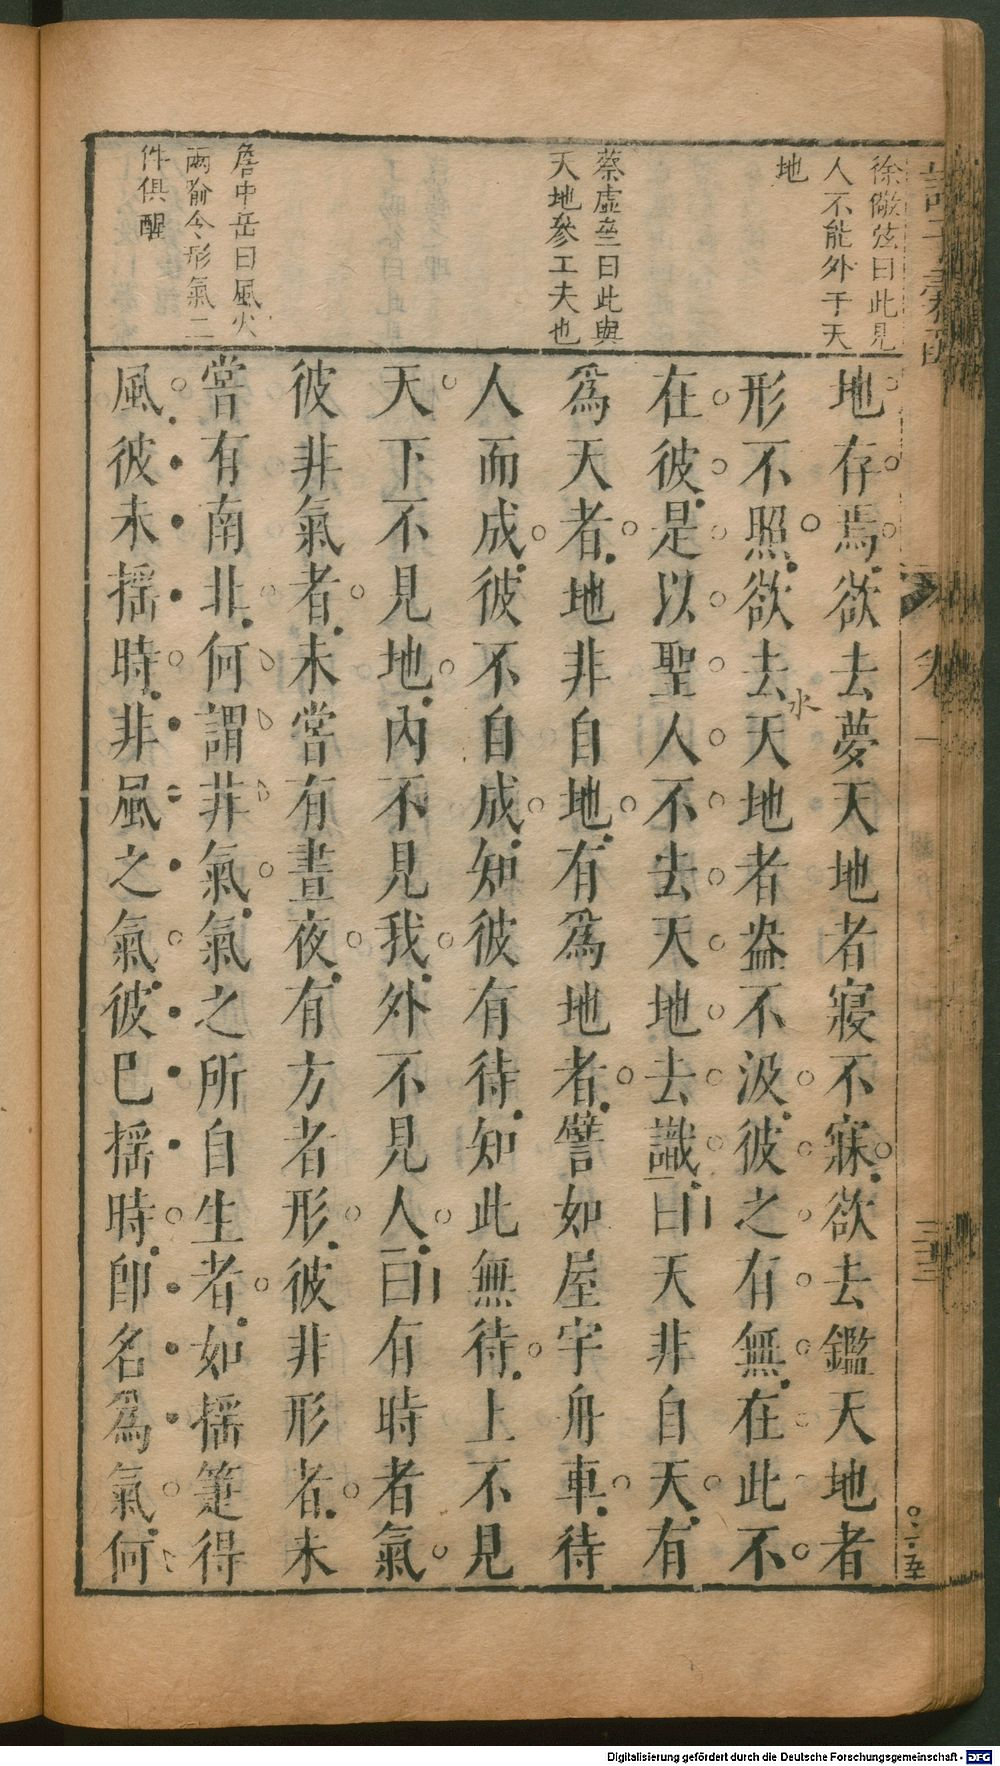 徐儆弦曰此見
人不能外于天
地
蔡虛臺曰此與
天地參工夫也
詹中岳曰風火
兩喻令形氣二
件俱醒
地存焉欲去夢天地者寢不寐欲去鑑天地者
形不照欲去天地者盎不汲彼之有無在此不
水
在彼是以聖人不去天地去識曰天非自天有
爲天者地非自地有爲地者譬如屋宇舟車待
人而成彼不自成知彼有待知此無待上不見
天下不見地內不見我外不見人曰有時者氣
彼非氣者未甞有晝夜有方者形彼非形者未
甞有南北何謂非氣氣之所自生者如搖箑得
風彼未搖時非風之氣彼已搖時卽名爲氣何
卷一
三
Digitalisierung gefördert durch die Deutsche Forschungsgemeinschaft - DFG